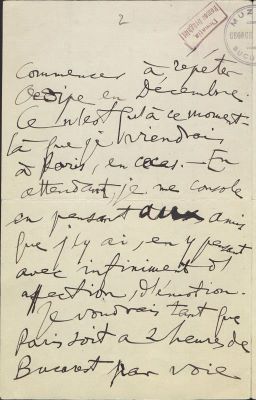 2
commencer à répéter
Oedipe en Décembre.
Ce n'est qu'à ce moment-
là que je viendrais
à Paris, en ce cas. — En
attendant, je me console
en pensant aux amis
que j'y ai, en y pensant
avec infiniment d'
affection, d'émotion.
Je voudrais tant que
Paris soit à 2 heures de
Bucarest par voie